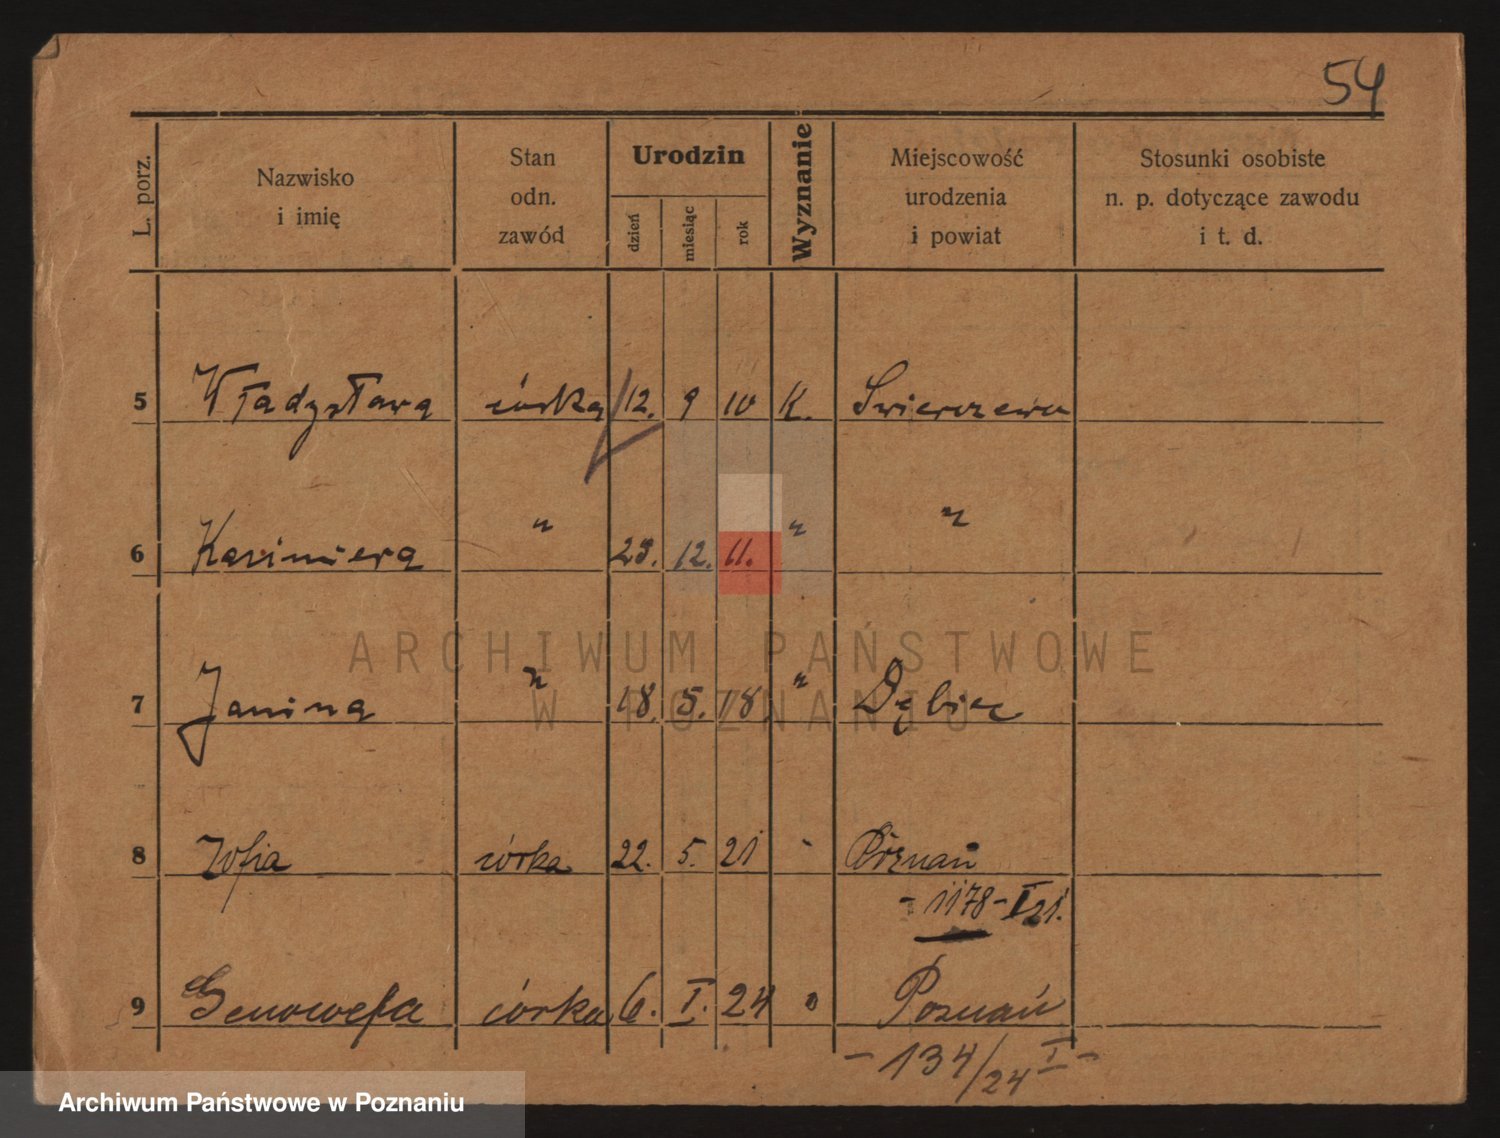 54
L. porz.
Nazwisko
i imię
Stan
odn.
zawód
Urodzin
dzień
miesiąc
rok
Wyznanie
Miejscowość
urodzenia
i powiat
Stosunki osobiste
n. p. dotyczące zawodu
i t. d.
5 Władysława córka 12. 9 10 K. Świerczewo
6 Kazimiera " 23. 12. 11. " "
7 Janina " 18. 5. 18 " Dębiec
8 Zofia córka 22. 5. 21 " Poznań
- 1178 - I 21.
9 Genowefa córka 6. I. 24 " Poznań
- 134/24 I -
ARCHIWUM PAŃSTWOWE
W POZNANIU
Archiwum Państwowe w Poznaniu